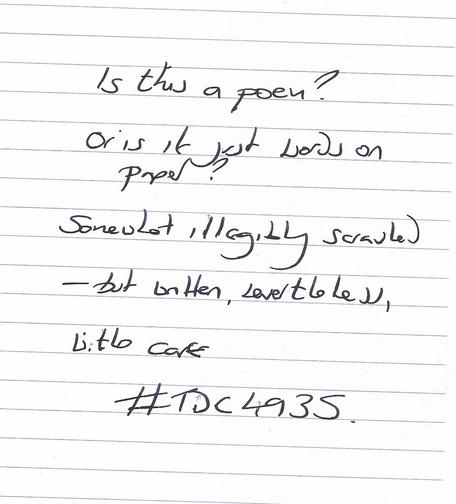 Is this a poem?
Or is it just words on
paper?
Somewhat illegibly scrawled
– but written, nevertheless,
with care
#TDC4935.